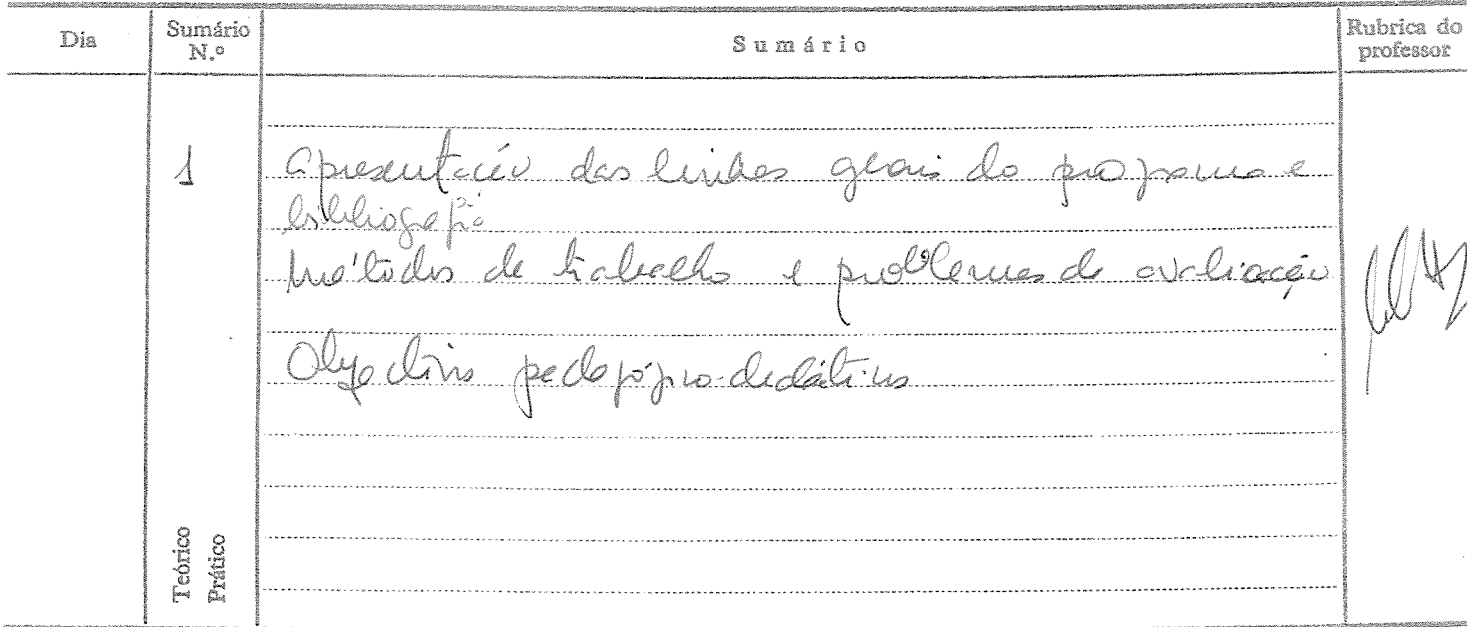 Dia
Sumário N.º
Sumário
Rubrica do professor
1
Apresentação das linhas gerais do programa e
bibliografia
Métodos de trabalho e problemas de avaliação
Objectivos pedagógico-didáticos
Teórico
Prático